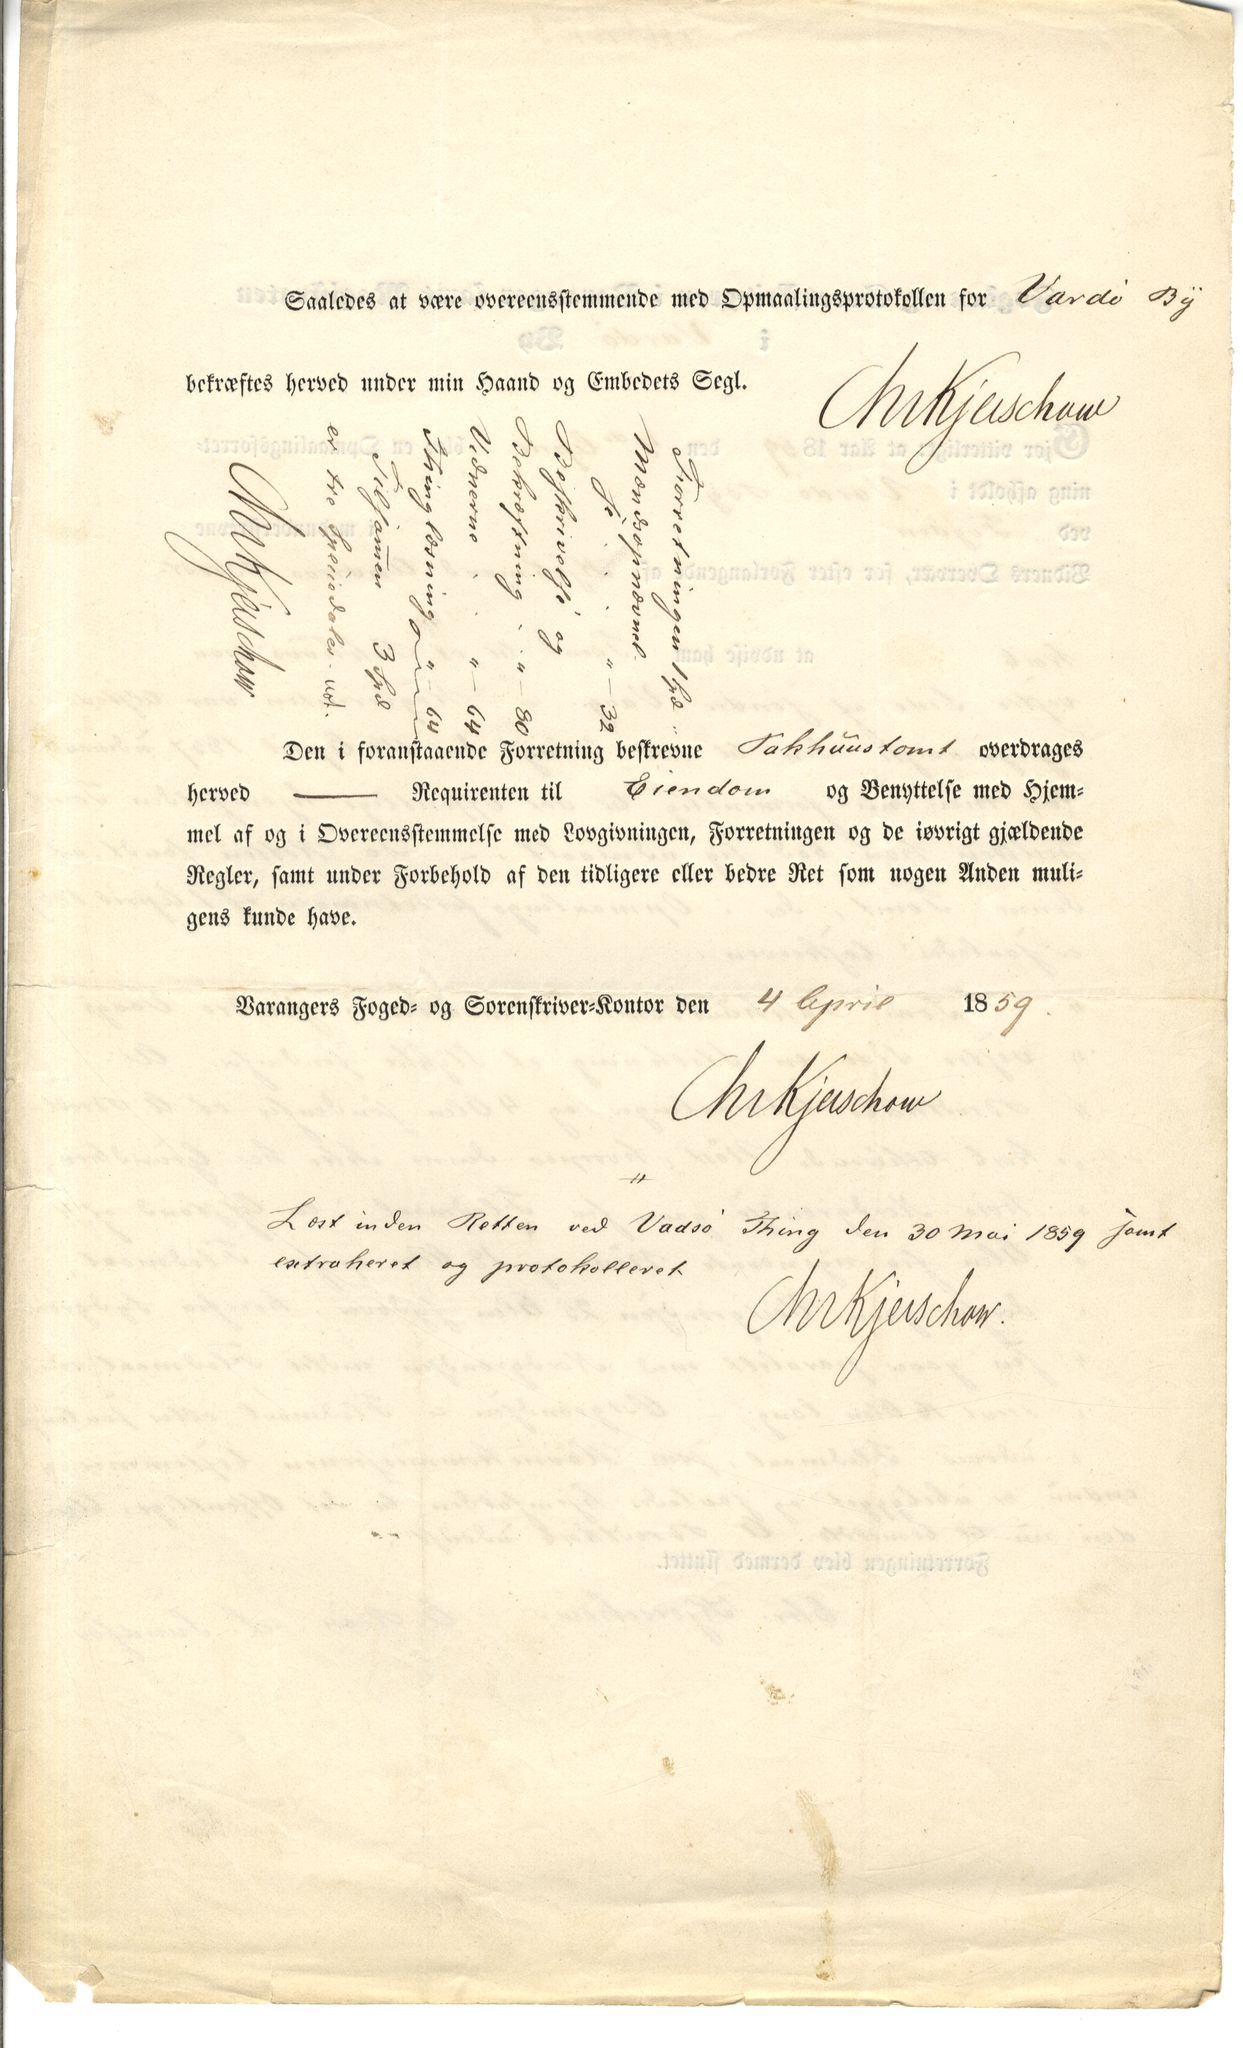 Saaledes at være overeensstemmende med Opmaalingsprotokollen for Vardö By
bekræftes herved under min Haand og Embedets Segl.
Chr Kjerschow
Forretningen 1 Spd
Mændsopnævnel
se . . . " - 32
Beskrivelse og
Bekræftning . " - 80
Vidnerne . " - 64
Thinglæsning " - 64
Tilsammen 3 Spd
er tre Speciedaler
Chr Kjerschow
Den i foranstaaende Forretning beskrevne Pakhuustomt overdrages
herved —— Requirenten til Eiendom og Benyttelse med Hjem-
mel af og i Overeensstemmelse med Lovgivningen, Forretningen og de iøvrigt gjældende
Regler, samt under Forbehold af den tidligere eller bedre Ret som nogen Anden muli-
gens kunde have.
Varangers Foged- og Sorenskriver-Kontor den 4 April 1859.
Chr Kjerschow
"
Læst inden Retten ved Vadsö Thing den 30 Mai 1859 samt
extraheret og protokolleret
Chr Kjerschow.